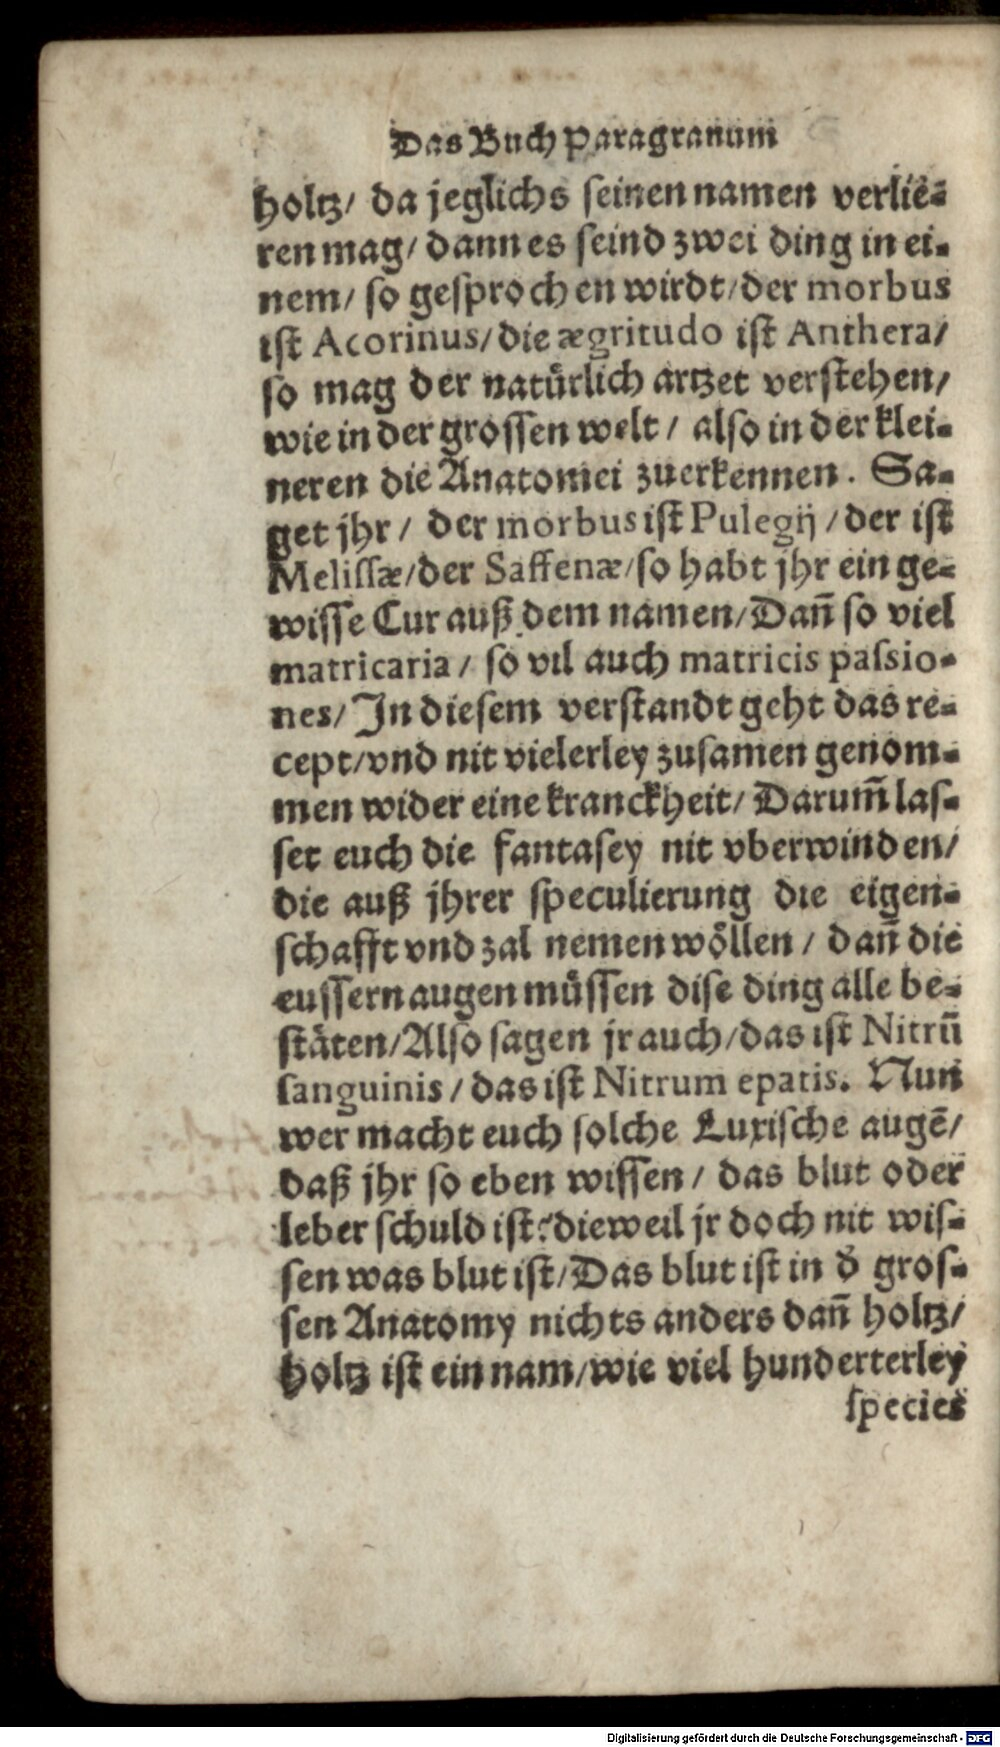 Das Buch Paragranum
holtz/ da jeglichs seinen namen verlie-
ren mag/ dann es seind zwei ding in ei-
nem/ so gesprochen wirdt/ der morbus
ist Acorinus/ die ægritudo ist Anthera/
so mag der natürlich artzet verstehen/
wie in der grossen welt / also in der klei-
neren die Anatomei zuerkennen. Sa-
get jhr / der morbus ist Pulegij / der ist
Melissæ/ der Saffenæ/ so habt jhr ein ge-
wisse Cur auß dem namen/ Dañ so viel
matricaria / so vil auch matricis passio-
nes/ In diesem verstandt geht das re-
cept/ vnd nit vielerley zusamen genom-
men wider eine kranckheit/ Darum̃ las-
set euch die fantasey nit vberwinden/
die auß jhrer speculierung die eigen-
schafft vnd zal nemen wöllen / dañ die
eussern augen müssen dise ding alle be-
stäten/ Also sagen jr auch/ das ist Nitrũ
sanguinis / das ist Nitrum epatis. Nun
wer macht euch solche Luxische augẽ/
daß jhr so eben wissen / das blut oder
leber schuld ist? dieweil jr doch nit wis-
sen was blut ist/ Das blut ist in d̃ gros-
sen Anatomy nichts anders dañ holtz/
holtz ist ein nam/ wie viel hunderterley
species
Digitalisierung gefördert durch die Deutsche Forschungsgemeinschaft - DFG